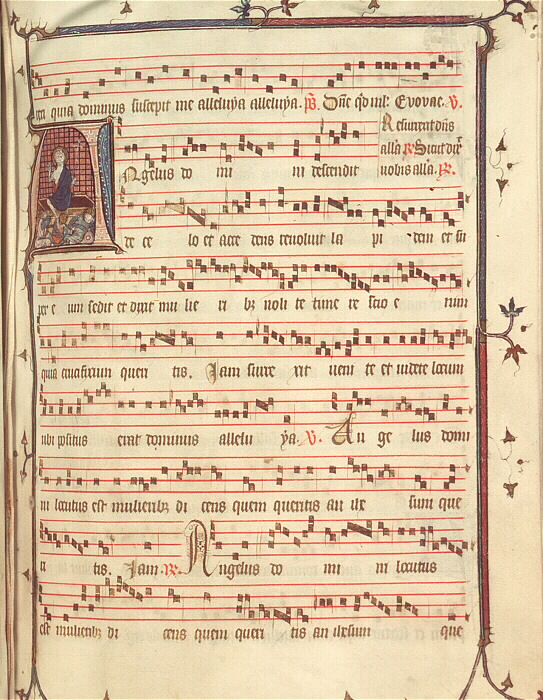 quia dominus suscepit me alleluya alleluya. Evovae. V.
Resurrexit dn̄s
all'a Sicut dix̄
Angelus do mi ni descendit vobis all'a.
de ce lo et acce dens revoluit la pi dem et su
per e um sedit et dixit mu lie ri bꝫ noli te time re scio e nim
quia crucifixum queri tis. Jam surre xit veni te et videte locum
ubi positus erat dominus allelu ya. V. An ge lus domi
ni locutus est mulieribꝫ di cens quem queritis an ihe sum que
ri tis. Jam. Angelus do mi ni locutus
est mulieribꝫ di cens quem queri tis an ihesum que